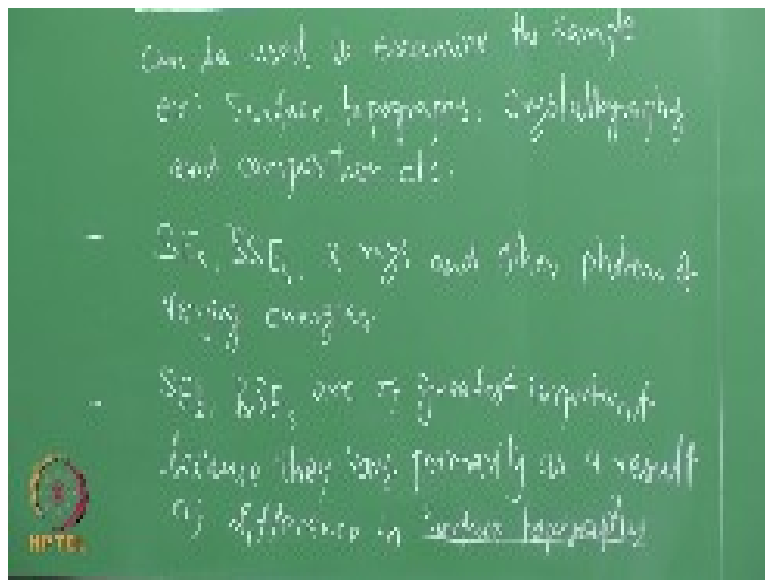 can be used to examine the sample
ex: Surface topography, Crystallography
and composition etc.
- SEs, BSEs, x rays and other photons of
varying energies
- SEs, BSEs are of greatest importance
because they vary primarily as a result
of difference in surface topography
NPTEL